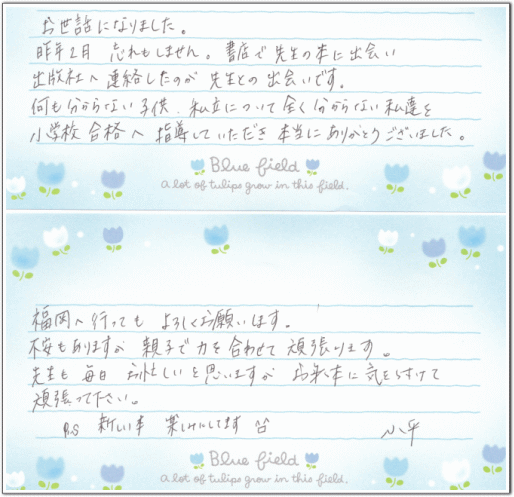 お世話になりました。
昨年2月 忘れもしません。書店で先生の本に出会い
出版社へ連絡したのが先生との出会いです。
何も分からない子供、私立について全く分からない私達を
小学校合格へ指導していただき本当にありがとうございました。
Blue field
A lot of tulips grow in this field.
福岡へ行っても よろしくお願いします。
不安もありますが 親子で力を合わせて頑張ります。
先生も 毎日 お忙しいと思いますが お身体に気をつけて
頑張って下さい。
P.S 新しい本 楽しみにしてます
Blue field
A lot of tulips grow in this field.